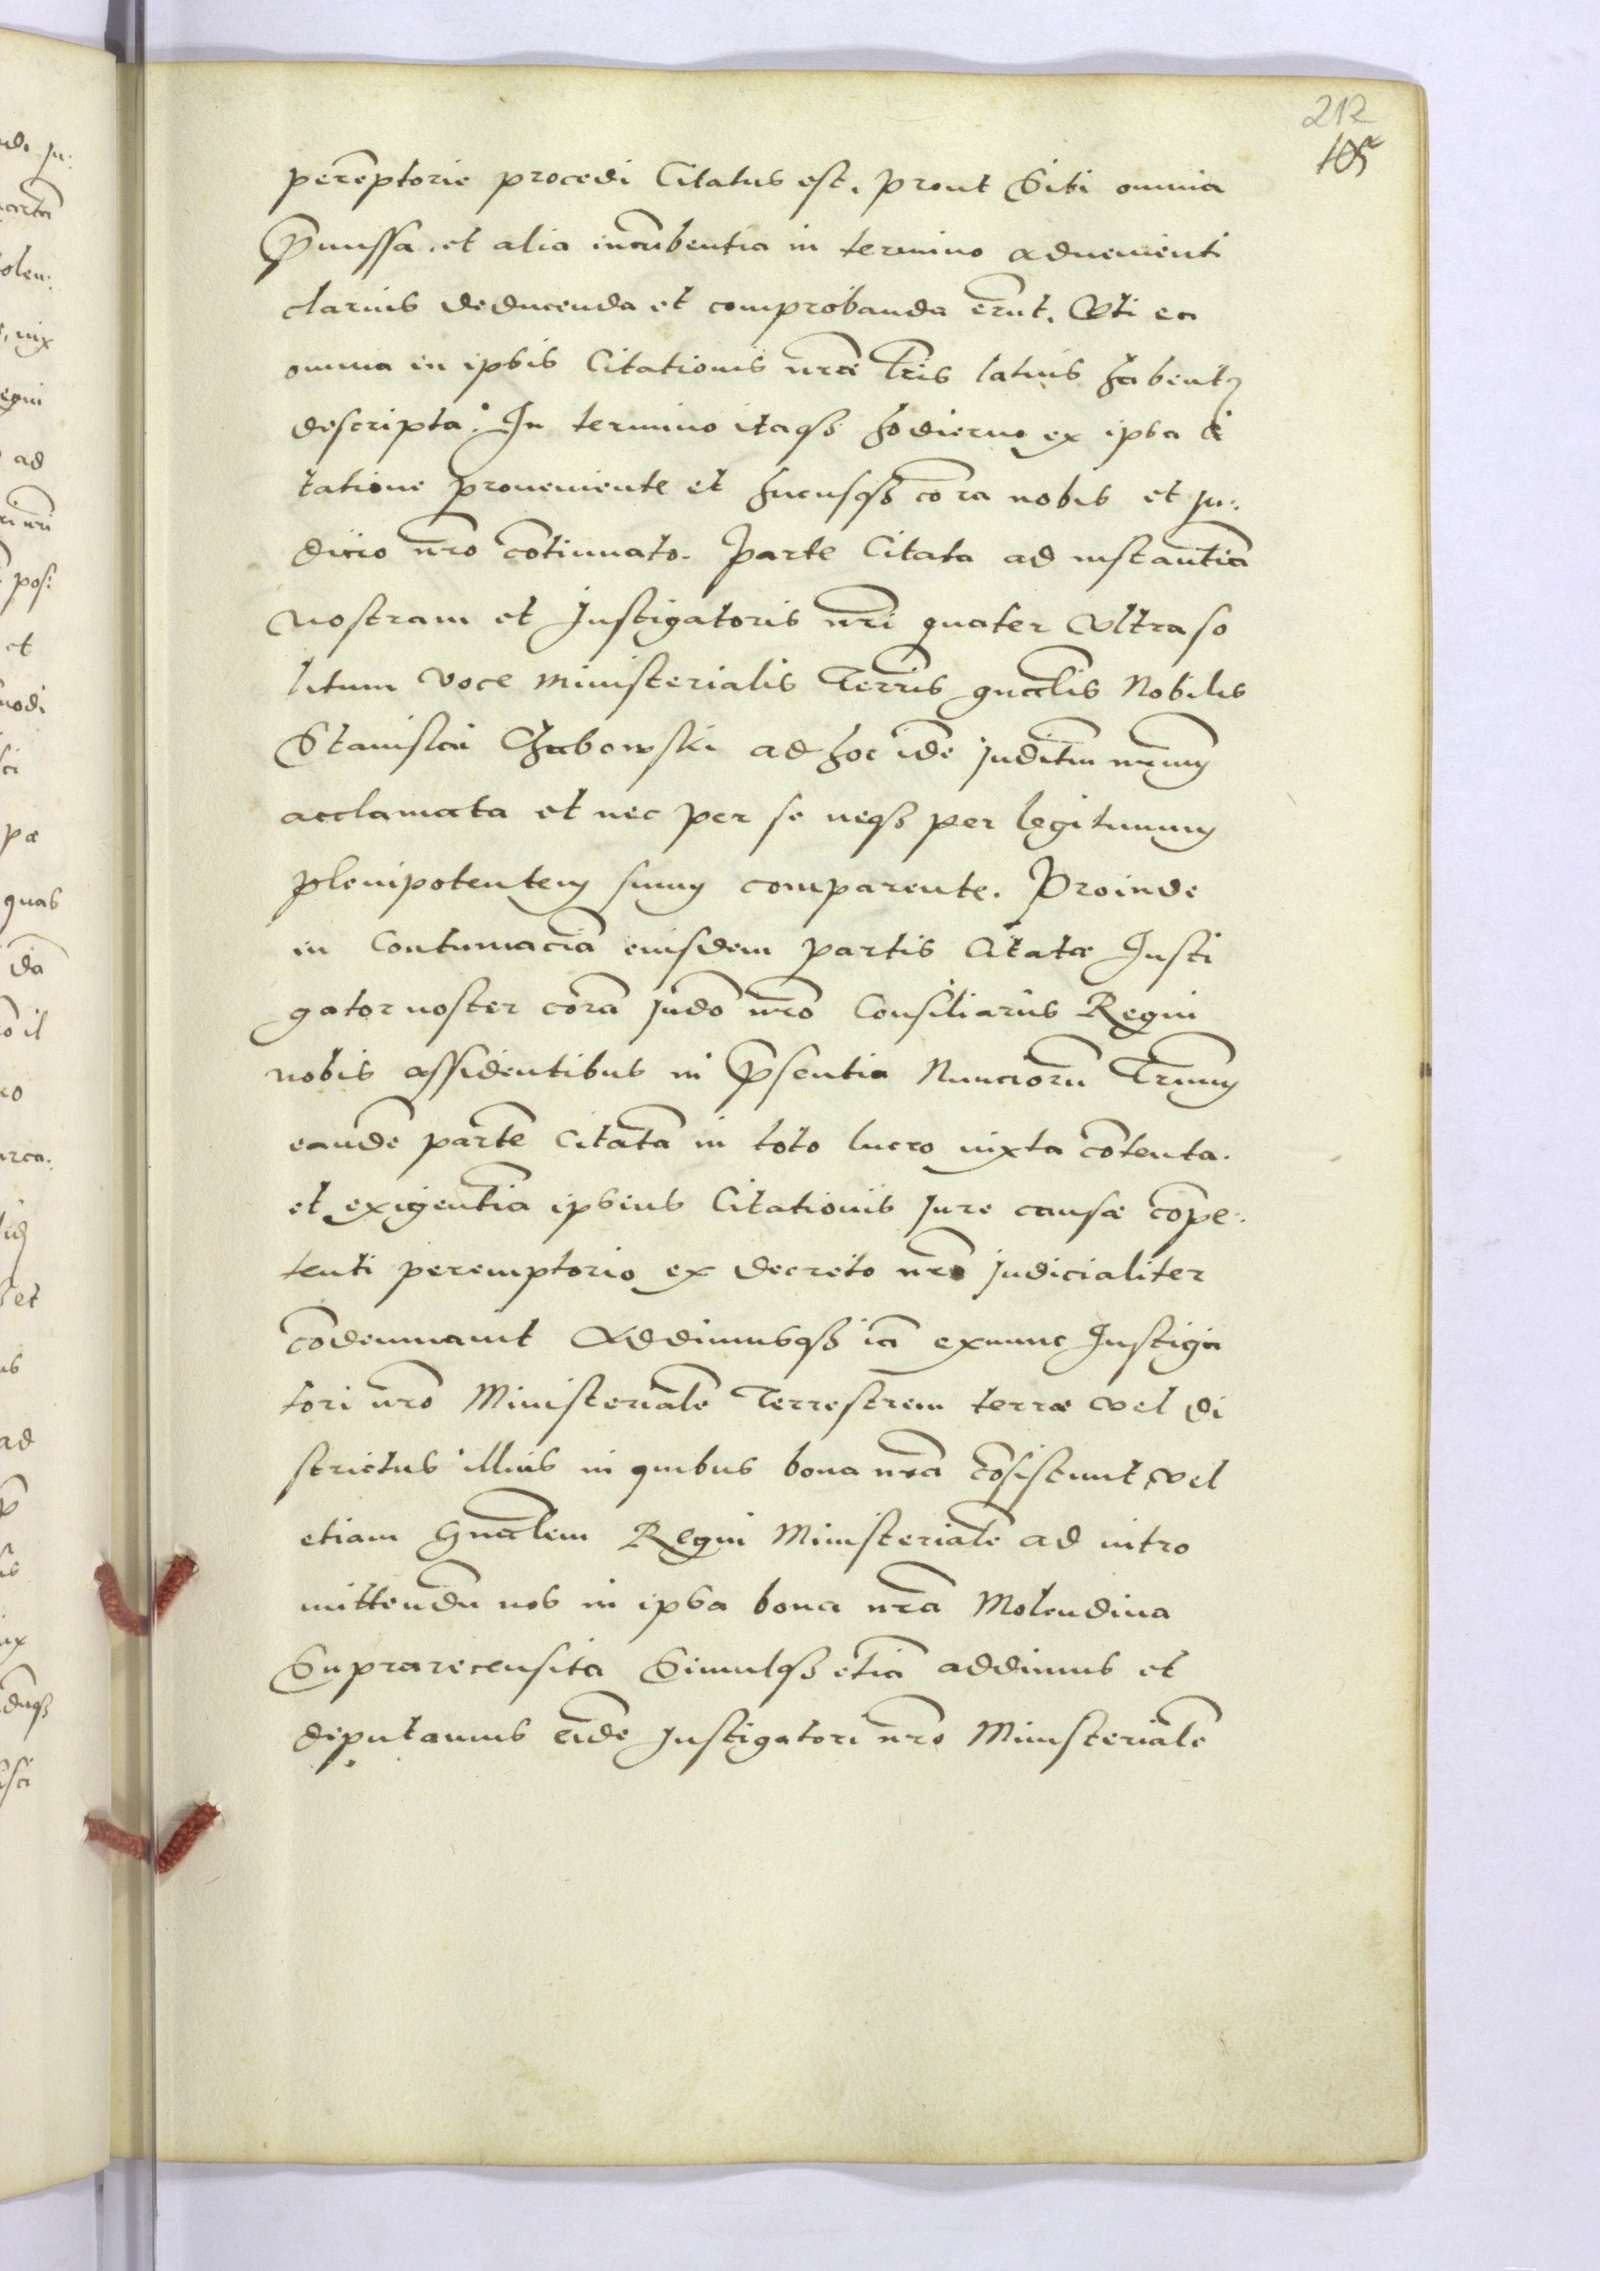 212
105
perēptorie procedi Citatus est. Prout Sibi omnia
p̄missa. et alia incūbentia in termino advenienti
clarius deducenda et comprobanda erūt. Uti ea
omnia in ipsis Citationis nrāe Lr̄is latius habentʒ
descripta. In termino itaqȝ hodierno ex ipsa Ci
tatione proveniente et hucusqȝ cora nobis et ju:
dicio nr̄o cōtinuato. Parte Citata ad instantiā
nostram et Instigatoris nr̄i quater Ultra so
litum voce Ministerialis Terrīs gnāalis Nobilis
Stanislai Chabowski ad hoc idē juditiū nrūm
acclamata et nec per se neqȝ per legitimum
plenipotentem suum comparente. Proinde
in Contumaciā eiusdem partis Citatæ Insti
gator noster corā judō nr̄o Consiliariis Regni
nobis assidentibus in p̄sentia Nunciorū Trr̄um
eandē partē Citatā in toto lucro iuxta cōtenta.
et exigentiā ipsius Citationis jure causæ cōpe:
tenti peremptorio ex decreto nrō judicialiter
cōdemnavit Addimusqȝ iā exnunc Instiga
tori nr̄o Ministerialē Terrestrem terræ vel di
strictus illius in quibus bona nrā cōsistunt vel
etiam Gnālem Regni Ministerialē ad intro
mittendū nos in ipsa bona nrā Molendina
Suprarecensita Simulqȝ etiā addimus et
deputamus eidē Instigatori nr̄o Ministerialē